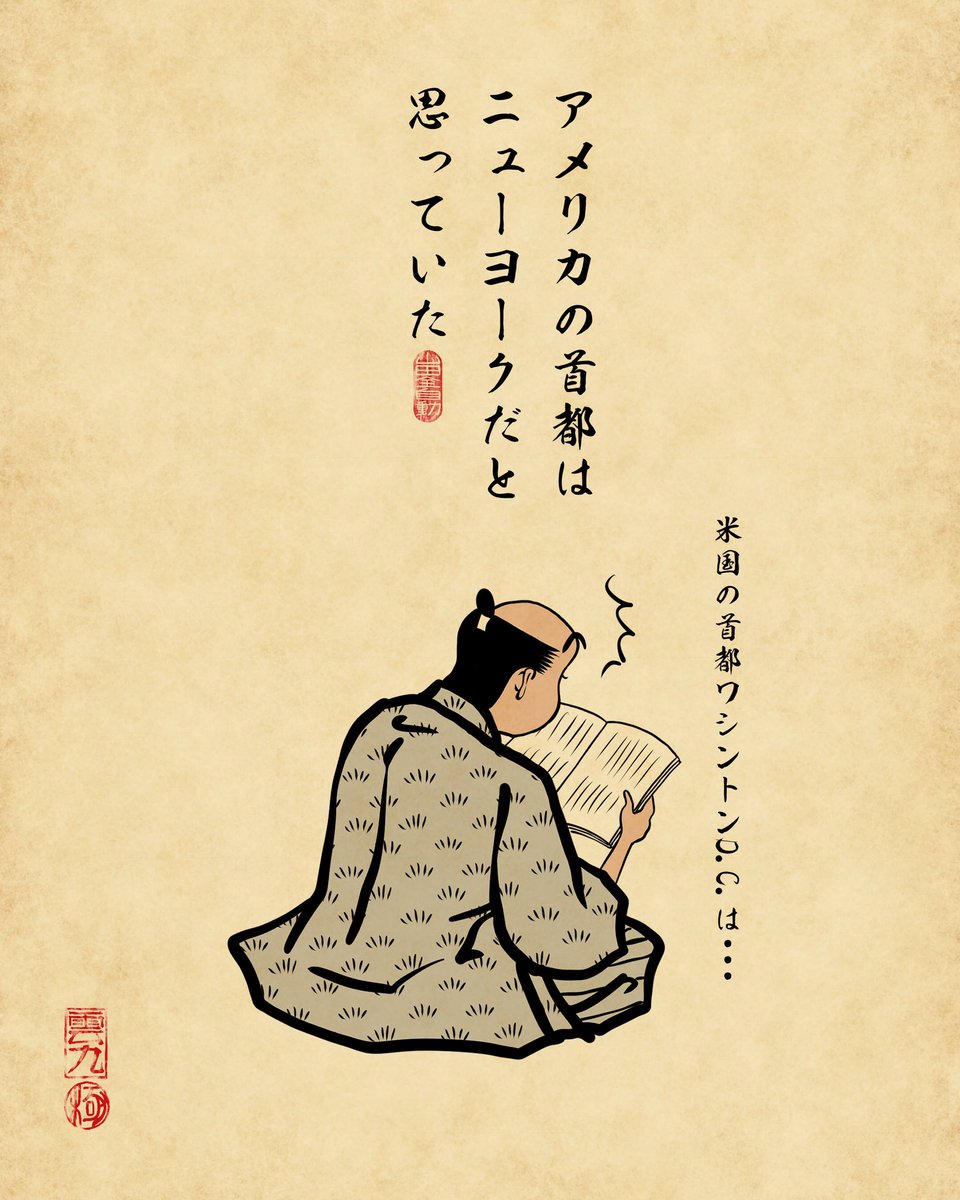 アメリカの首都は
ニューヨークだと
思っていた
米国の首都ワシントンD.C.は・・・